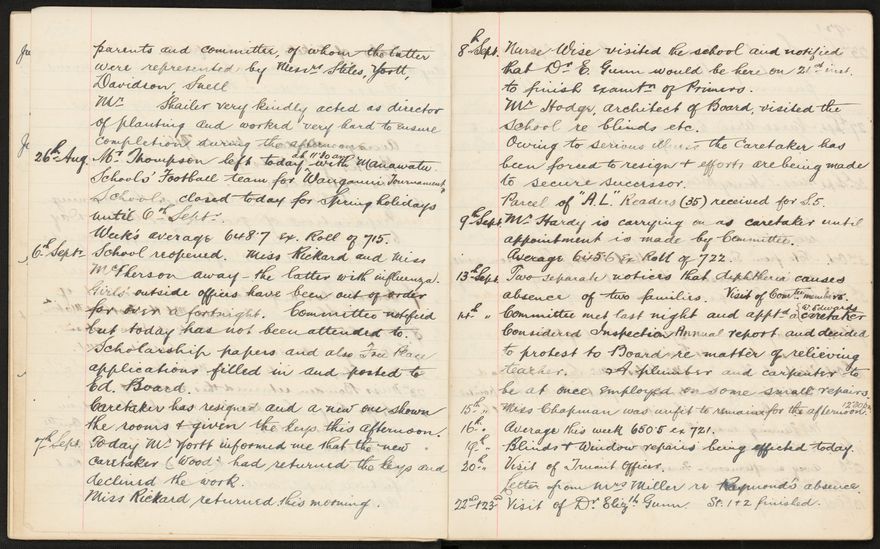 parents and committee, of whom the latter
were represented by Messrs Stiles, Yortt,
Davidson, Snell
Mr Shailer very kindly acted as director
of planting and worked very hard to ensure
completion during the afternoon
26th Aug. Mr Thompson left today at 11 30 am with Manawatu
Schools' Football team for "Wanganui Tournament"
Schools closed today for Spring holidays
until 6th Septr.
Week's average 648.7 ex. Roll of 715.
6th Septr School reopened. Miss Rickard and Miss
McPherson away – the latter with influenza.
Girls' outside offices have been out of order
for over a fortnight. Committee notified
but today has not been attended to.
Scholarship papers and also Free Place
applications filled in and posted to
Ed. Board.
Caretaker has resigned and a new one shown
the rooms & given the keys this afternoon.
7th Sept. Today Mr Yortt informed me that the new
caretaker (Wood) had returned the keys and
declined the work.
Miss Rickard returned this morning.
8th Sept. Nurse Wise visited the school and notified
that Dr E. Gunn would be here on 21st inst.
to finish examtn of Primers.
Mr Hodge, architect of Board, visited the
School re blinds etc.
Owing to serious illness the Caretaker has
been forced to resign & efforts are being made
to secure successor.
Parcel of "A.L." Readers (35) received for S.5.
9th Sept. Mr Hardy is carrying on as caretaker until
appointment is made by Committee.
Average ex Roll of 722
13th Sept. Two separate notices that diphtheria causes
absence of two families. Visit of Comtee members.
14th " Committee met last night and apptd a caretaker (W. Edwards)
Considered Inspection Annual report and decided
to protest to Board re matter of relieving
teacher. A plumber and carpenter to
be at once employed on some small repairs.
15th " Miss Chapman was unfit to remain for the afternoon. 12 30 pm
16th " Average this week 650.5 ex 721.
19th " Blinds & Window repairs being effected today.
20th " Visit of Truant Officer.
Letter from Mrs Miller re Raymond's absence.
22nd & 23rd Visit of Dr Elizth Gunn St. 1 & 2 finished.